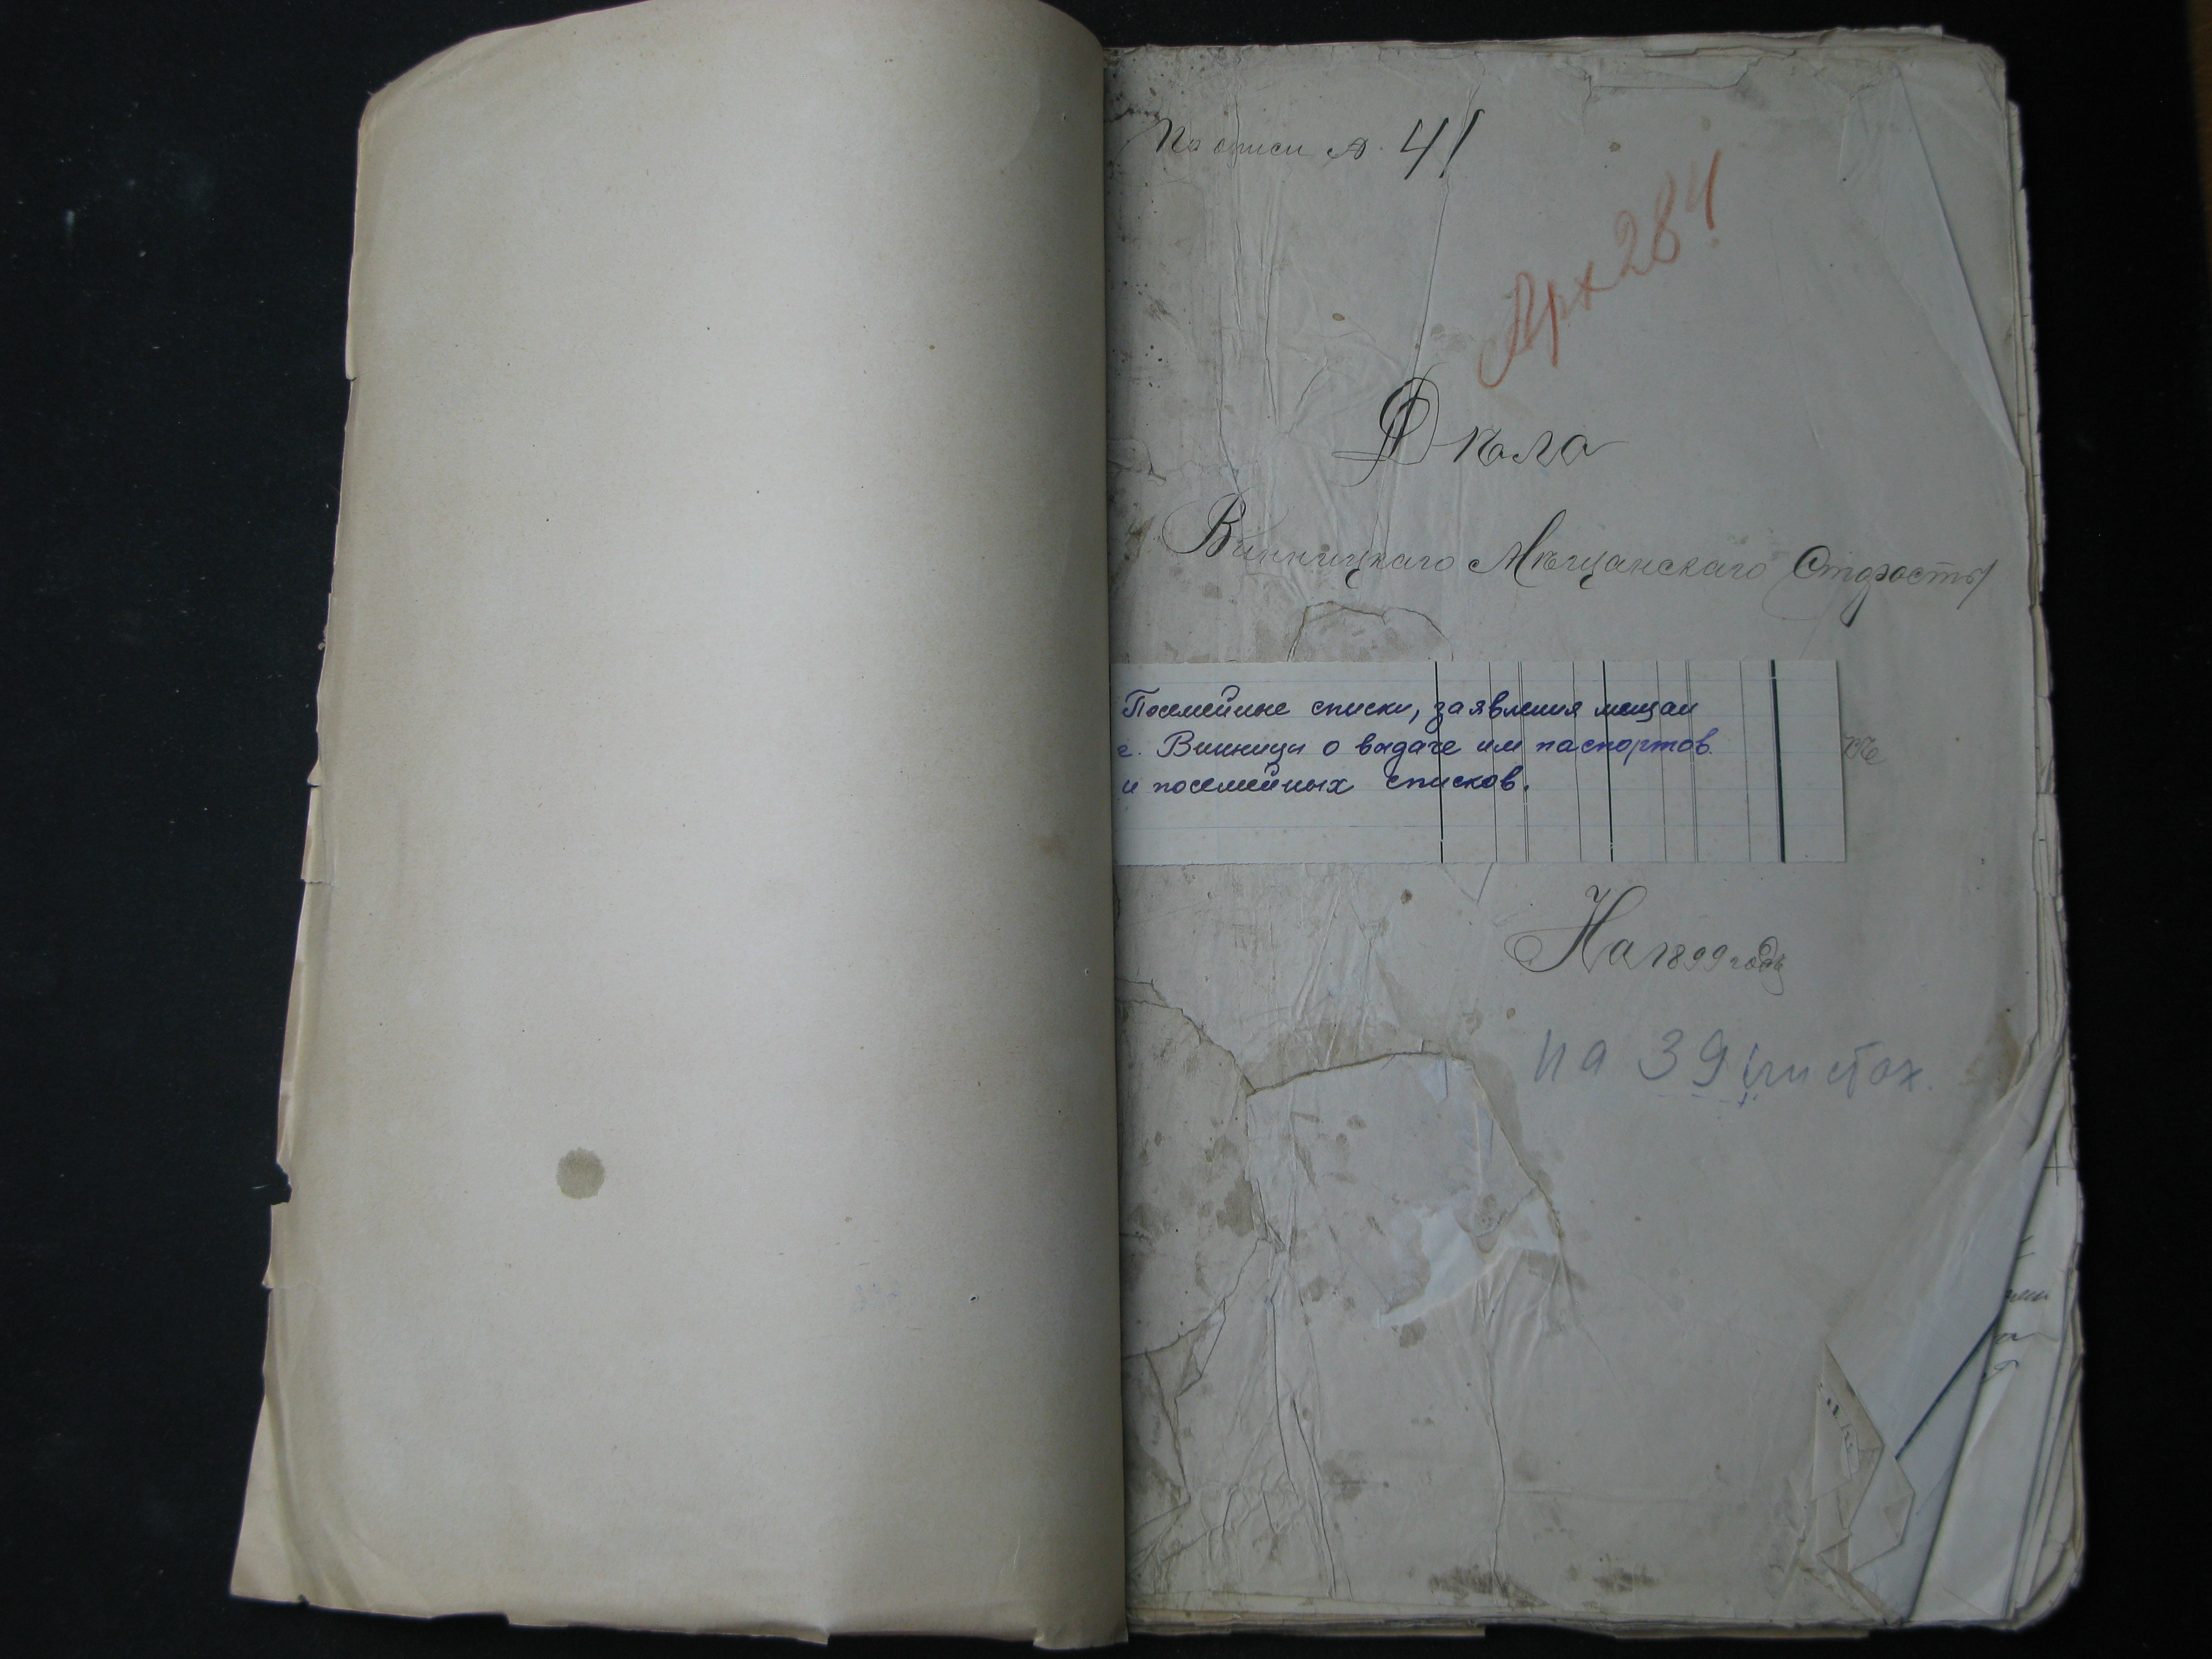 По описи № 41
Арх 284
Дѣло
Винницкаго Мѣщанскаго Старосты
Посемейные списки, заявления мещан
г. Винницы о выдаче им паспортов
и посемейных списков.
На 1899 годъ
на 39 листах.